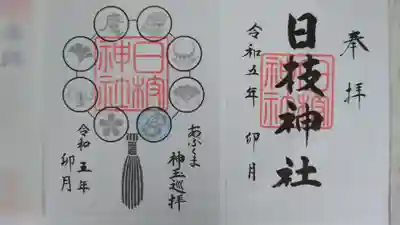 奉拝
日枝神社
日枝神社
令和五年
卯月
日枝神社
あぶくま
神玉巡拝
令和五年
卯月